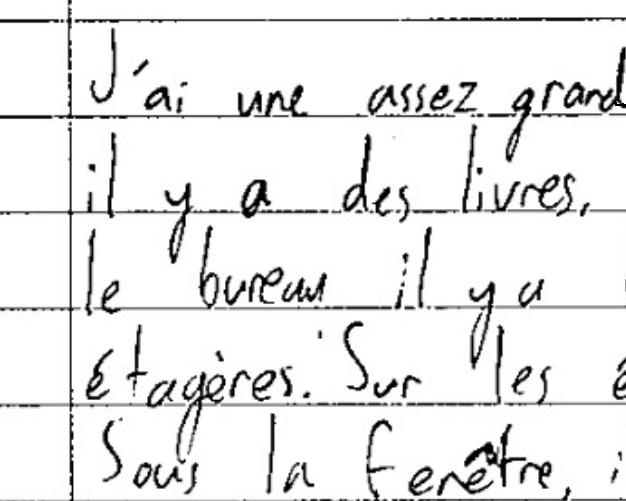 J'ai une assez grand
il y a des livres,
le bureau il y a
étagères. Sur les
Sous la fenêtre,